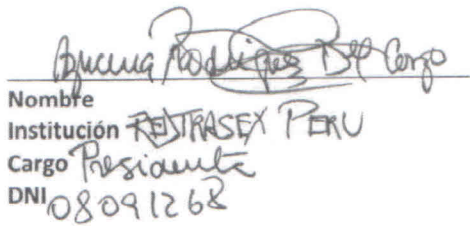 Azucena Rodríguez Del Corzo
Nombre
Institución REDTRASEX PERU
Cargo Presidenta
DNI 08091268